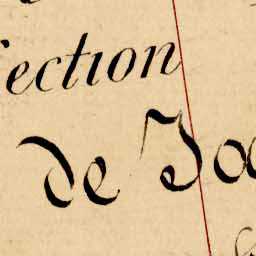 ection
de Jo